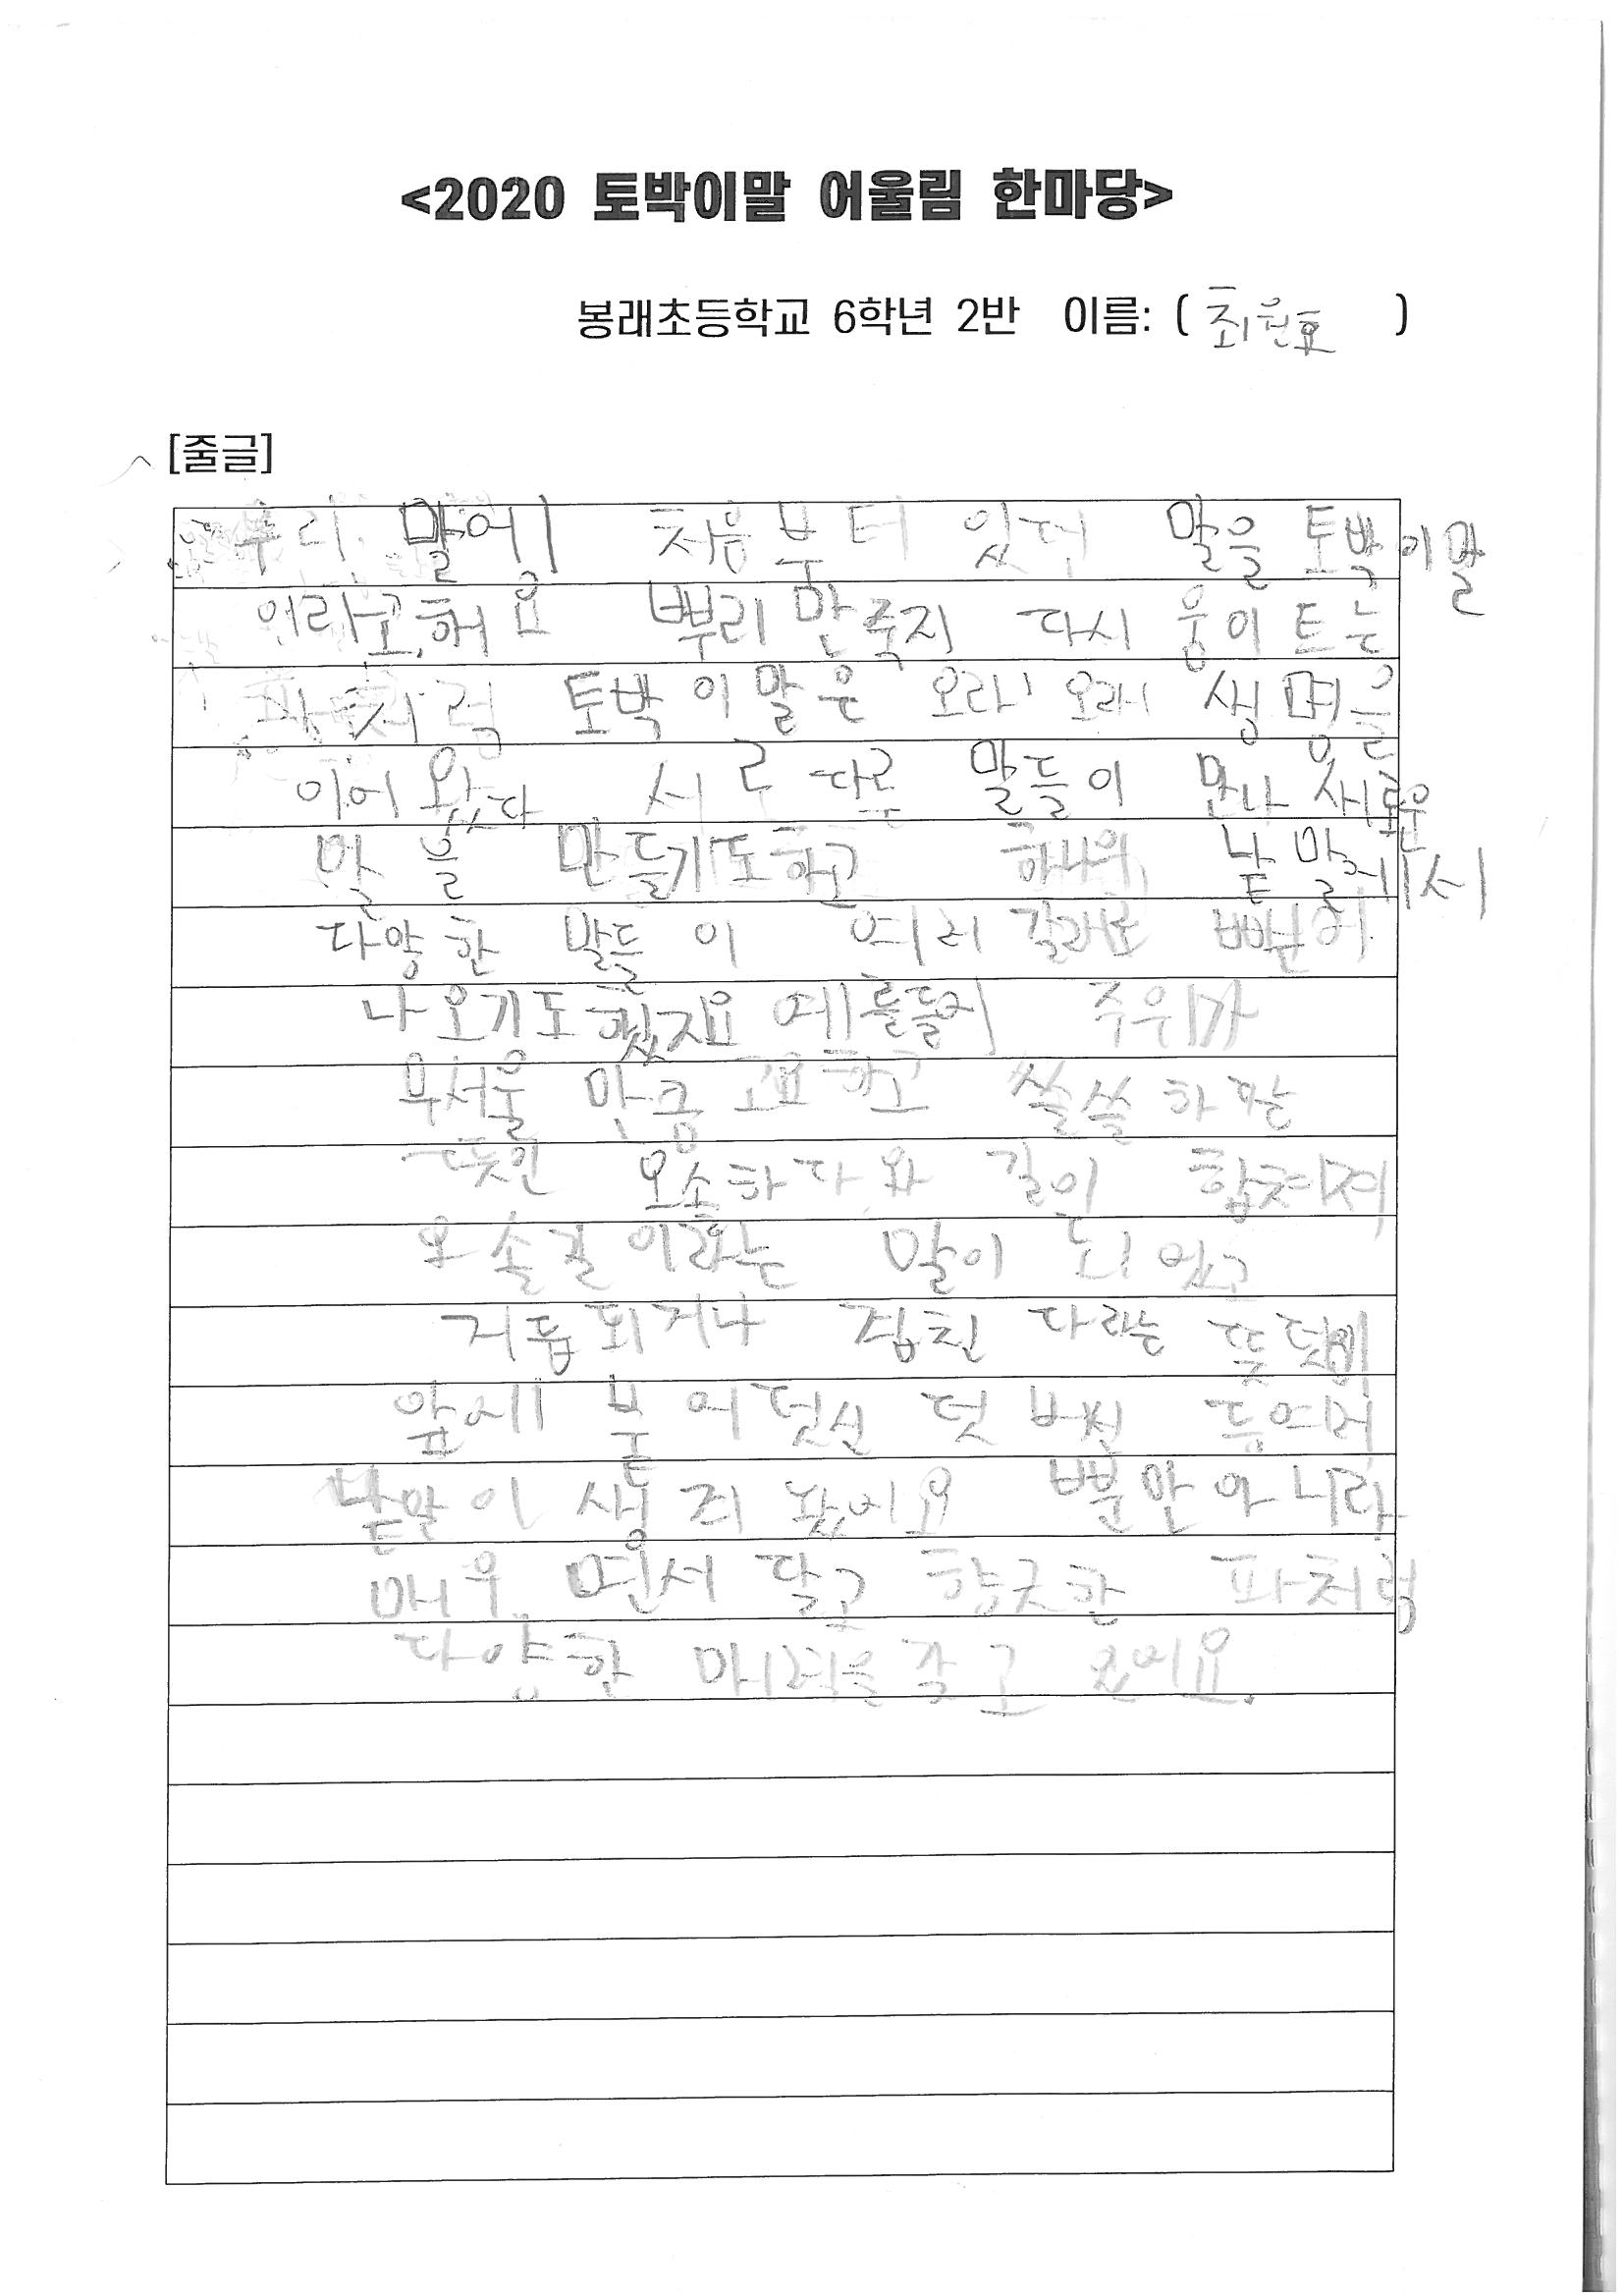 <2020 토박이말 어울림 한마당>
봉래초등학교 6학년 2반 이름: ( 최원호 )
[줄글]
우리 말에 처음부터 있던 말을 토박이말
이라고해요 뿌리만 죽지 다시 움이 트는
파처럼 토박이말은 오래 오래 생명을
이어왔다 서로 다른 말들이 만나 새로운
말을 만들기도하고 하나의 낱말에서
다양한 말들이 여러갈래로 뻗어
나오기도했지요 예를들어 주위가
무서울 만큼 고요하고 쓸쓸하다는
뜻인 오솔하다와 길이 합쳐져
오솔길이라는 말이 되었고
거듭되거나 겹친 다라는 뜻 덧이
앞에 붙어 덧신 덧버선 등여러
낱말이 생겨 났어요 뿐만아니라
매우면서 달고 향긋한 파처럼
다양한 매력을갖고 있어요.